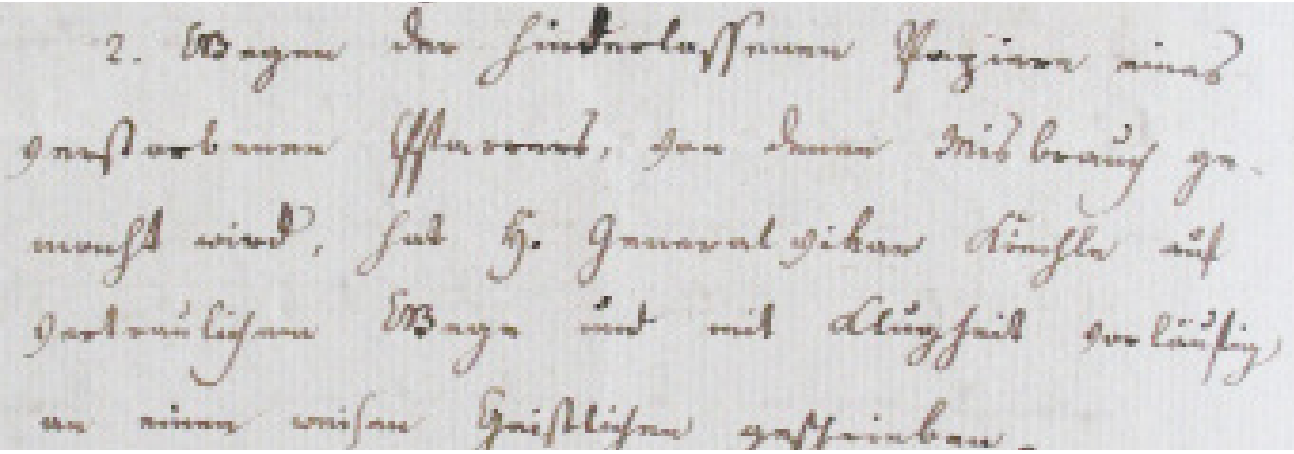 2. Wegen der hinderlassenen Papiere eines
verstorbenen Pfarrers, von denen Misbrauch ge-
macht wird, hat H. Generalvikar auf
vertraulichem Wege und mit Klugheit vorläufig
an einen weisen Geistlichen geschrieben.